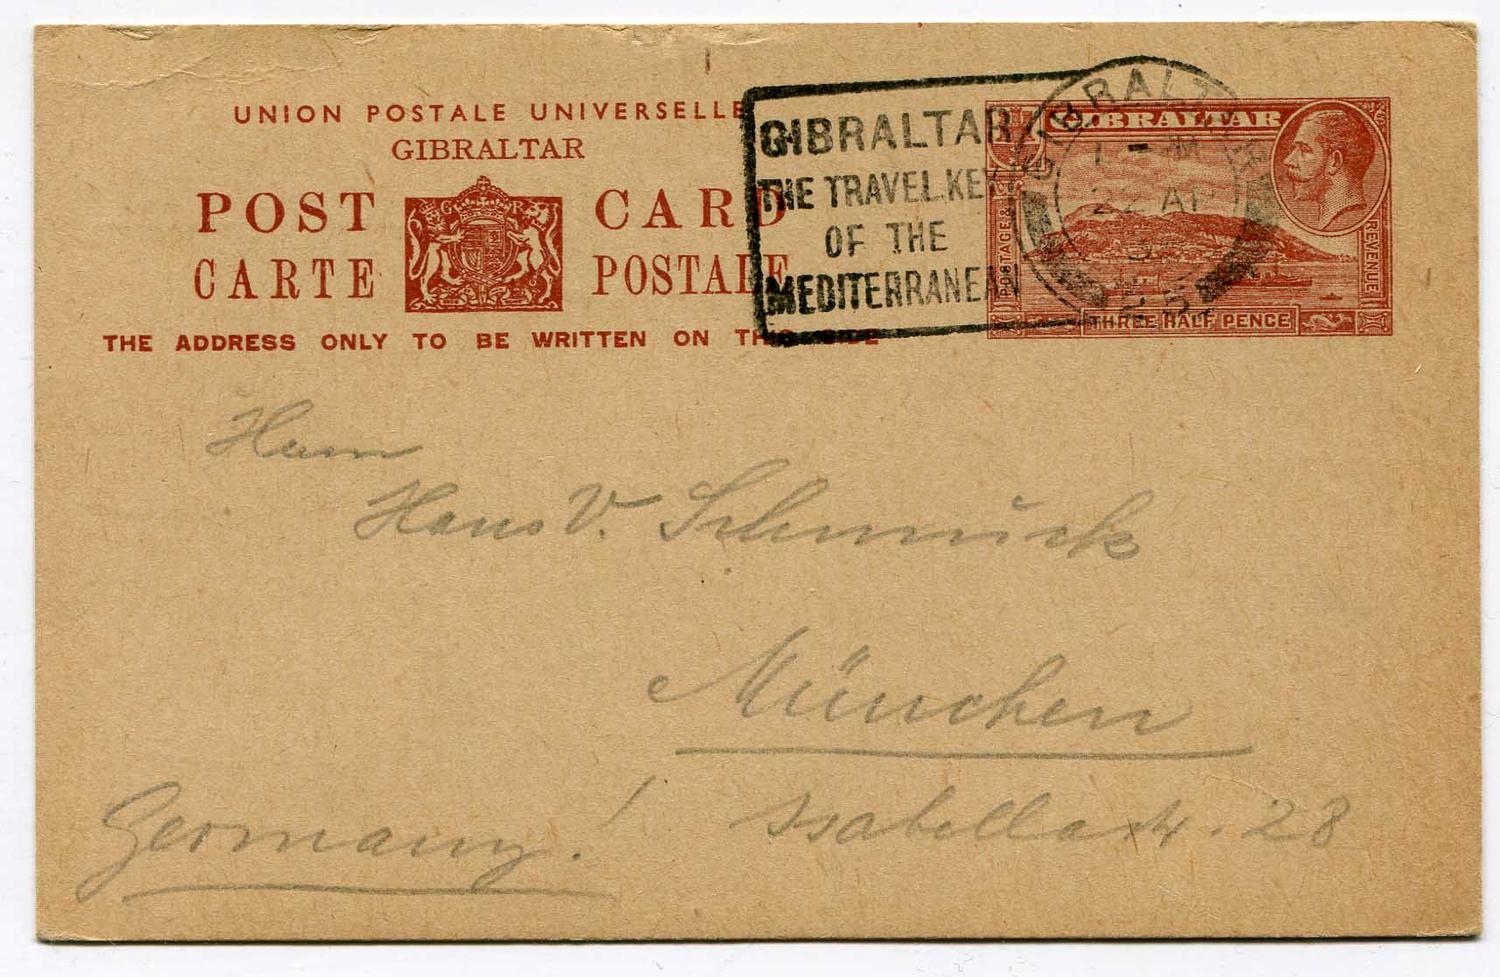 UNION POSTALE UNIVERSELLE
GIBRALTAR
POST CARD
CARTE POSTALE
THE ADDRESS ONLY TO BE WRITTEN ON THIS SIDE
GIBRALTAR
THE TRAVEL KEY
OF THE
MEDITERRANEAN
GIBRALTAR
22 AP
GIBRALTAR
POSTAGE &
REVENUE
THREE HALF PENCE
Herrn
Hans V. Schmuck
München
Isabellastr. 28
Germany!